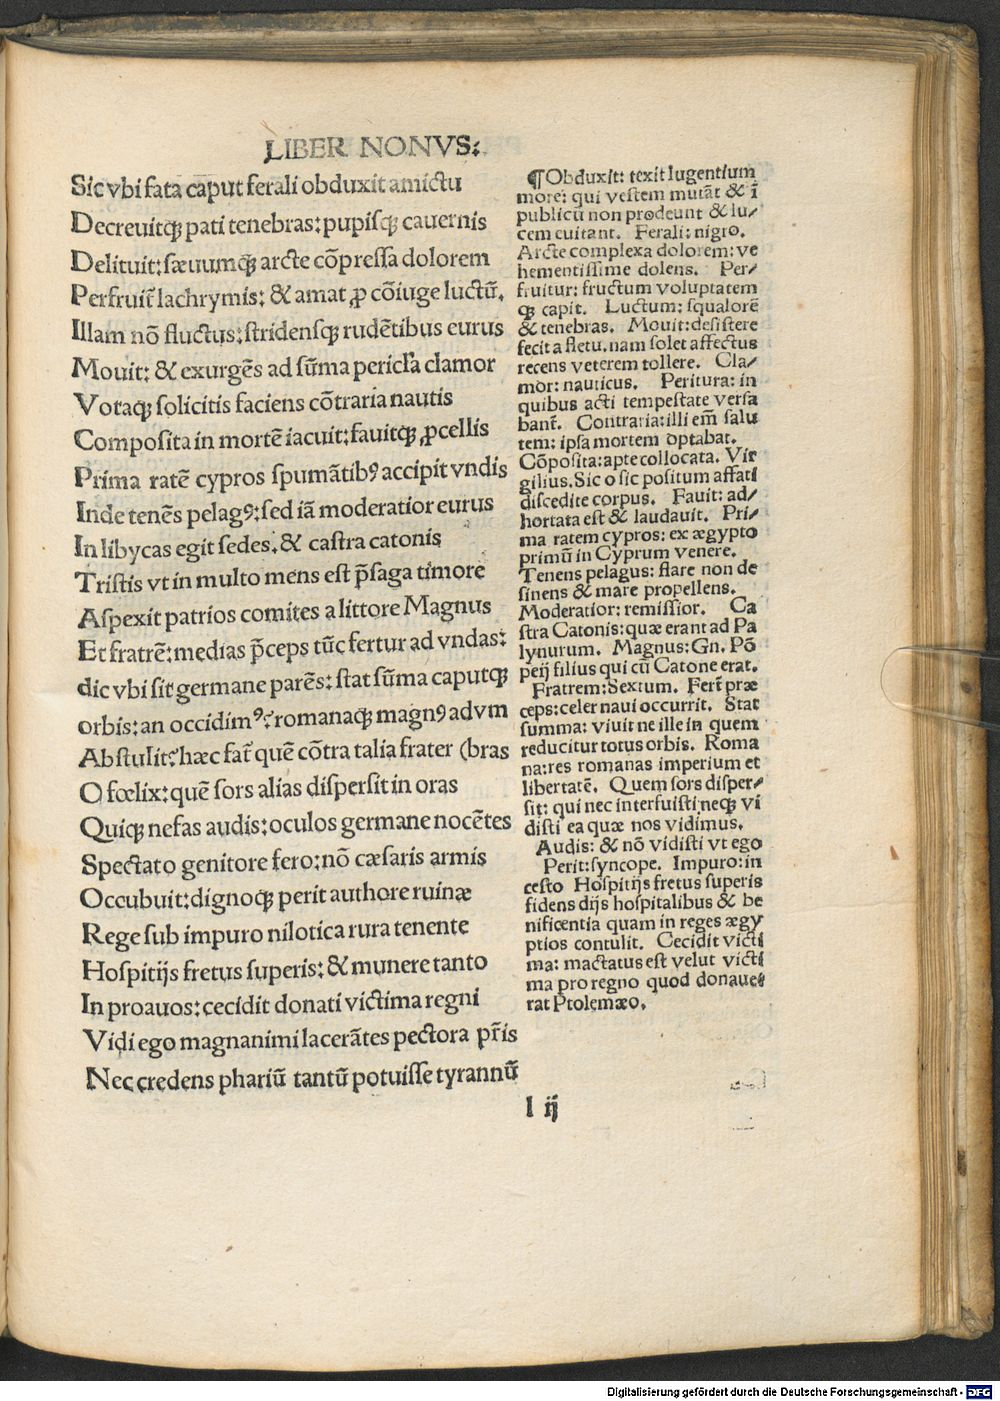 LIBER NONVS:
Sic vbi fata caput ferali obduxit amictu
Decreuitqꝫ pati tenebras: pupisqꝫ cauernis
Delituit: sæuumqꝫ arcte cõpressa dolorem
Perfruit̃ lachrymis: & amat ꝓ cõiuge luctũ.
Illam nõ fluctus: stridensqꝫ rudẽtibus eurus
Mouit: & exurgẽs ad sũma pericl'a clamor
Votaqꝫ solicitis faciens cõtraria nautis
Composita in mortẽ iacuit: fauitqꝫ ꝓcellis
Prima ratẽ cypros spumãtibꝰ accipit vndis
Inde tenẽs pelagꝰ: sed iã moderatior eurus
In libycas egit sedes. & castra catonis
Tristis vt in multo mens est p̃saga timore
Aspexit patrios comites a littore Magnus
Et fratrẽ: medias p̃ceps tũc fertur ad vndas:
dic vbi sit germane parẽs: stat sũma caputqꝫ
orbis: an occidimꝰ: romanaqꝫ magnꝰ ad vm
Abstulit? hæc fat̃ quẽ cõtra talia frater (bras
O fœlix: quẽ sors alias dispersit in oras
Quiqꝫ nefas audis: oculos germane nocẽtes
Spectato genitore fero: nõ cæsaris armis
Occubuit: dignoqꝫ perit authore ruinæ
Rege sub impuro nilotica rura tenente
Hospitijs fretus superis: & munere tanto
In proauos: cecidit donati victima regni
Vidi ego magnanimi lacerãtes pectora pr̃is
Nec credens phariũ tantũ potuisse tyrannũ
¶ Obduxit: texit lugentium
more: qui vestem mutãt & ĩ
publicũ non prodeunt & lu⸗
cem euitant. Ferali: nigro.
Arcte complexa dolorem: ve
hementissime dolens. Per⸗
fruitur: fructum voluptatem
qꝫ capit. Luctum: squalorẽ
& tenebras. Mouit: desistere
fecit a fletu, nam solet affectus
recens veterem tollere. Cla⸗
mor: nauticus. Peritura: in
quibus acti tempestate versa
bant̃. Contraria: illi em̃ salu
tem: ipsa mortem optabat.
Cõposita: apte collocata. Vir
gilius. Sic o sic positum affati
discedite corpus. Fauit: ad⸗
hortata est & laudauit. Pri⸗
ma ratem cypros: ex ægypto
primũ in Cyprum venere.
Tenens pelagus: flare non de
sinens & mare propellens.
Moderatior: remissior. Ca
stra Catonis: quæ erant ad Pa
lynurum. Magnus: Gn. Põ
peij filius qui cũ Catone erat.
Fratrem: Sextum. Fert̃ præ
ceps: celer naui occurrit. Stat
summa: viuit ne ille in quem
reducitur totus orbis. Roma
na: res romanas imperium et
libertatẽ. Quem sors disper⸗
sit: qui nec interfuisti neqꝫ vi
disti ea quæ nos vidimus.
Audis: & nõ vidisti vt ego
Perit: syncope. Impuro: in
cesto Hospitijs fretus superis
fidens dijs hospitalibus & be
nificentia quam in reges ægy
ptios contulit. Cecidit victi
ma: mactatus est velut victi
ma pro regno quod donaue
rat Ptolemæo.
l ij
Digitalisierung gefördert durch die Deutsche Forschungsgemeinschaft - DFG